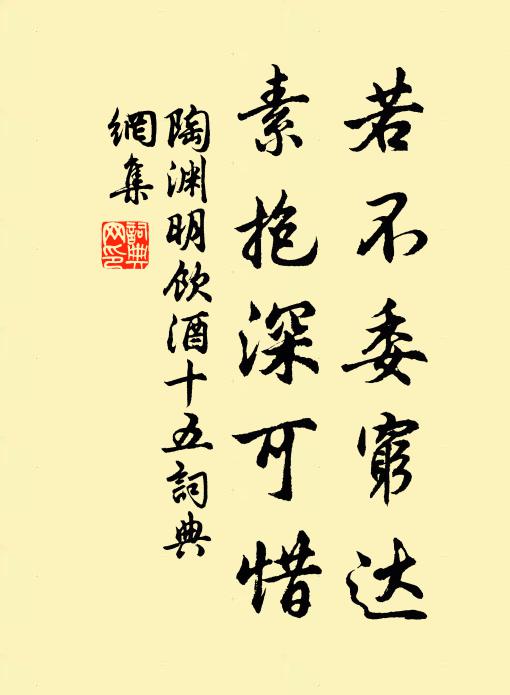 若不委窮达
素抱深可惜
陶渊明飲酒十五詞典
網集
詞典
网印